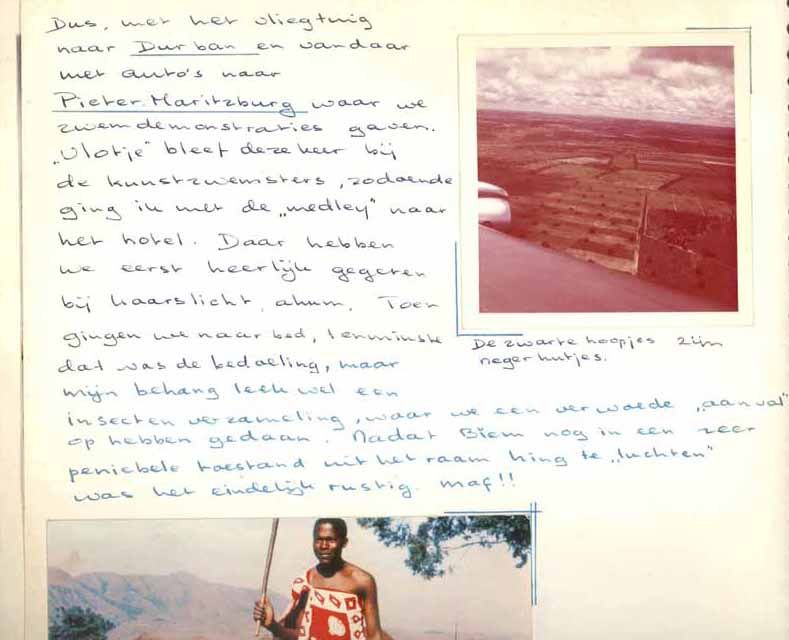 Dus, met het vliegtuig
naar Durban en vandaar
met auto's naar
Pieter-Maritzburg waar we
zwemdemonstraties gaven.
"Vlotje" bleef deze keer bij
de kunstzwemsters, zodoende
ging ik met de "medley" naar
het hotel. Daar hebben
we eerst heerlijk gegeten
bij kaarslicht, ahum. Toen
gingen we naar bed, tenminste
dat was de bedoeling, maar
mijn behang leek wel een
insecten verzameling, waar we een verwoede "aanval"
op hebben gedaan. Nadat Biem nog in een zeer
peniebele toestand uit het raam hing te "luchten"
was het eindelijk rustig. maf!!
De zwarte hoopjes zijn
negerhutjes.